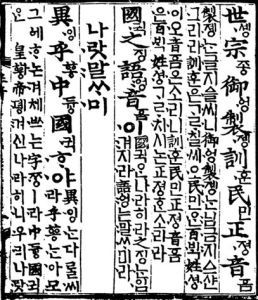 世솅宗조ᇰ御ᅌᅥᆼ製졩訓훈民민正져ᇰ音ᅙᅳᆷ
製졩는글지ᅀᅳᆯ씨니御ᅌᅥᆼ製졩는님금지ᅀᅳ샨
그리라訓훈은ᄀᆞᄅᆞ칠씨오民민ᄋᆞᆫ百ᄇᆡᆨ姓셔ᇰ
이오音ᅙᅳᆷ은소리니訓훈民민正져ᇰ音ᅙᅳᆷ
은百ᄇᆡᆨ姓셔ᇰᄀᆞᄅᆞ치시논正져ᇰᄒᆞᆫ소리라
國귁之징語ᅌᅥᆼ音ᅙᅳᆷ이
國귁ᄋᆞᆫ나라히라之징ᄂᆞᆫ입
겨지라語ᅌᅥᆼ는말ᄊᆞ미라
나랏말ᄊᆞ미
異잉乎ᅘᅩᆼ中듀ᇰ國귁ᄒᆞ야
異잉ᄂᆞᆫ다ᄅᆞᆯ씨
라乎ᅘᅩᆼ는아모
그ᅌᅦᄒᆞ논겨체ᄡᅳ는字ᄍᆞᆼㅣ라中듀ᇰ國귁
ᄋᆞᆫ皇ᅘᅪᇰ帝뎽겨신나라히니우리나랏